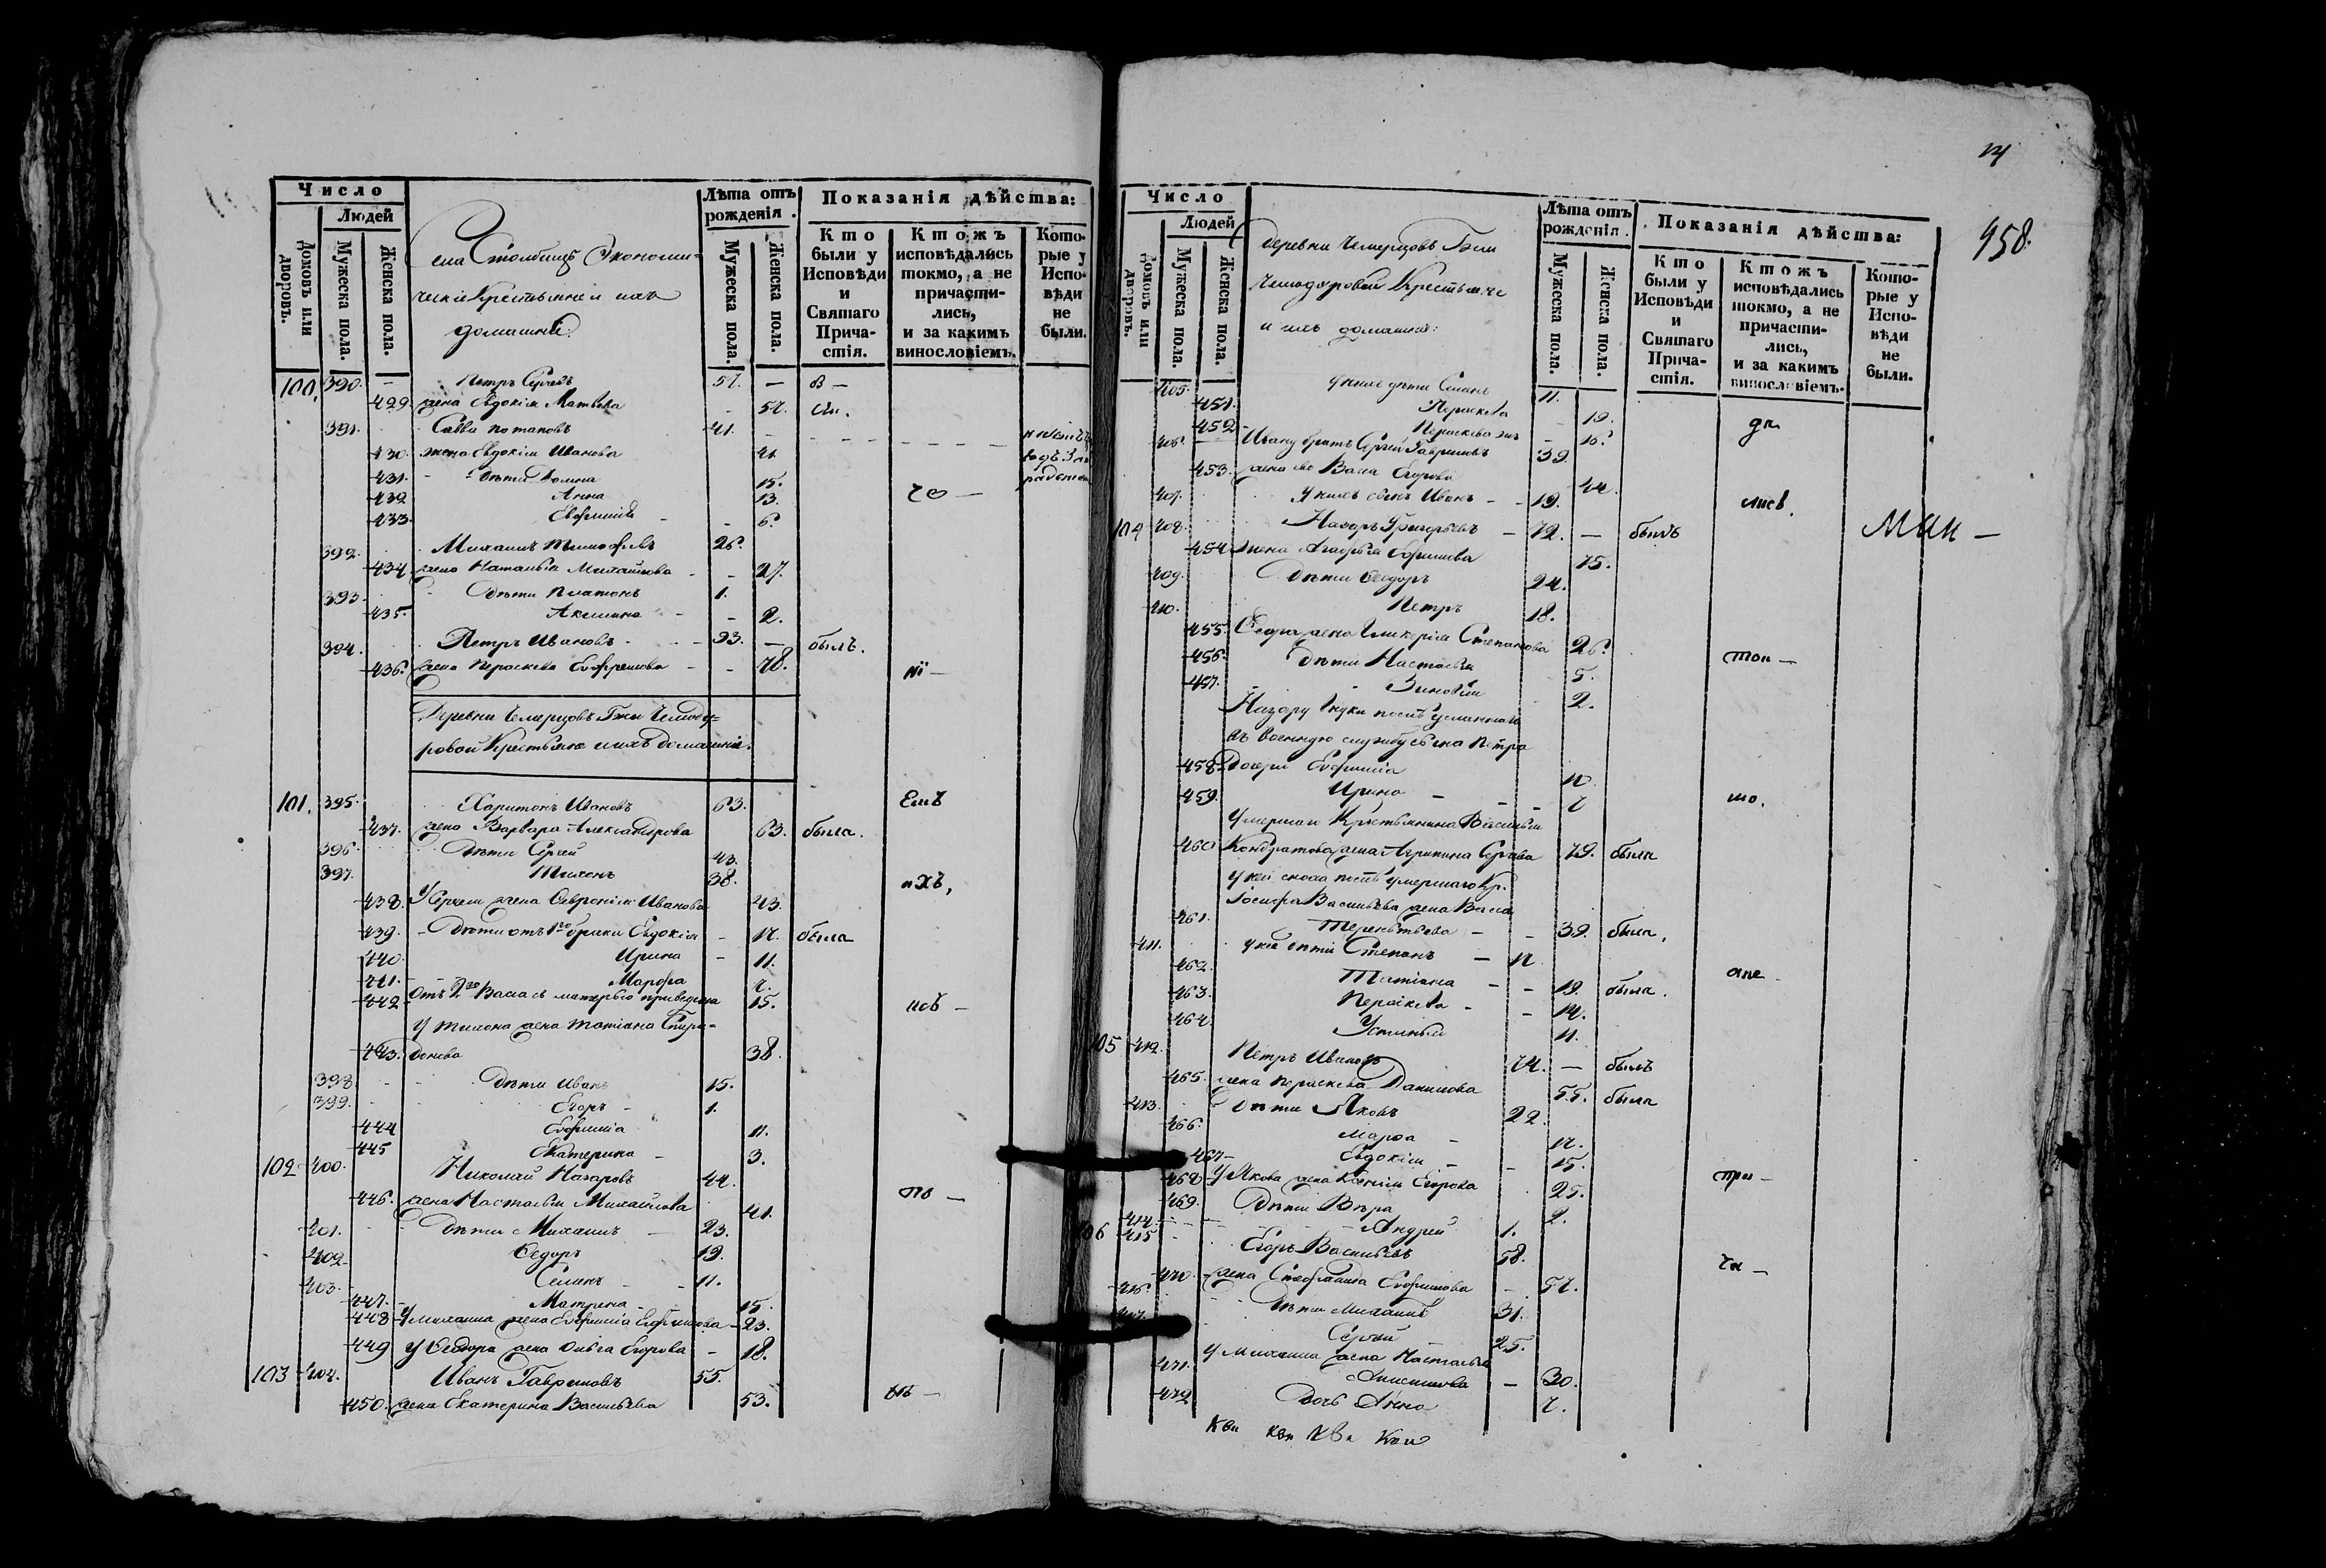 Число
Людей
Домовъ или дворовъ.
Мужеска пола.
Женска пола.
Села Столбищъ Экономи-
ческіе Крестьяне и ихъ
домашніе.
Лѣта отъ рожденія.
Мужеска пола.
Женска пола.
Показанія дѣйства:
Кто были у Исповѣди и Святаго Прича-стія.
Ктожъ исповѣдались токмо, а не причасти-лись, и за какимъ винословіемъ.
Кото-рые у Испо-вѣди не были.
100. 390. — Петръ Сергѣевъ 57. — в —
429 жена Евдокія Матвѣева - 57.
391. Савва Потаповъ 41. —
430. жена Евдокія Иванова 41
431. - дѣти Домна 15.
432 Анна 13.
433. Евфимія - 6.
392. Михаилъ Тимофѣевъ 26.
434 жена Наталья Михайлова - 27.
393. дѣти Платонъ 1.
435. Акилина - 2.
394. Петръ Ивановъ - 93. — былъ.
436. жена Параскева Евфремова - 78.
Деревни Чемерцовъ Гжи Чемоду-
ровой Крестьяне и ихъ домашніе.
101. 395. Харитонъ Ивановъ 63.
437. жена Варвара Александрова 63. была.
396. дѣти Сергей 43.
397. Тихонъ 38. ихъ,
438. У Сергея жена Февронія Иванова 43.
439. - Дѣти отъ 1го брака Евдокія - 17. была
440. Ирина - 11.
441. Марфа 7.
442 Отъ 2го Васса съ матерью приведена 15.
У Тихона жена Татіана Спири-
443. донова 38.
398. - - дѣти Иванъ 15.
399. Егоръ - 1.
444 Евфимія 11.
445 Екатерина - 3.
102 400. Николай Назаровъ 44. по —
446. жена Настасья Михайлова 41.
401. дѣти Михаилъ — 23.
402. Ѳедоръ 19.
403. Семенъ - 11.
447. Матрена 15.
448 У Михаила жена Евфимія Евфимова - 23.
449 У Ѳедора жена Ольга Егорова - 18.
103 404. Иванъ Гавриловъ 55.
450. жена Екатерина Васильева 53.
14
958.
Число
Людей
Домовъ или дворовъ.
Мужеска пола.
Женска пола.
деревни Чемерцовъ Гжи
Чемодуровой Крестьяне
и ихъ домашніе:
Лѣта отъ рожденія.
Мужеска пола.
Женска пола.
Показанія дѣйства:
Кто были у Исповѣди и Святаго Прича-стія.
Ктожъ исповѣдались токмо, а не причасти-лись, и за какимъ винословіемъ.
Кото-рые у Испо-вѣди не были.
405. у нихъ дѣти Семенъ 11.
451. Параскева 19.
452 Параскева 16.
406. Ивану братъ Сергей Гавриловъ 39.
453. жена его Васса Егорова 44.
407. у нихъ сынъ Иванъ - - 19.
104 408. Назаръ Григорьевъ — 72. — былъ
454 жена Агафья Ефимова 75.
409. Дѣти Ѳеодоръ 24.
410. Петръ 18.
455. Ѳедора жена Гликерія Степанова 26.
456. дѣти Настасья 5.
457. - Зиновія 2.
въ военную службу сына Петра
458. Дочери Евфимія
459. Ирина - - - 7
Умершаго Крестьянина Василья
460 Кондратова жена Агрипина 79. была
у ней сноха послѣ умершаго Кр.
Іосифа Васильева жена Васса
461. Терентьева - - 39. была,
411. у нее дѣти Степанъ — 17
462. Татіана - - 19. была.
463. Параскева - - 14.
464. Устинья 11.
105 412. Петръ Ивановъ 74. — былъ
465. жена Параскева Данилова 55. была
413. дѣти Яковъ 22.
466. Марфа - 17.
467 — Евдокія - - 15.
468 У Якова жена Ксенія Егорова 25. при —
469. Дѣти Вѣра 2.
414. Андрей 1.
106 415 Егоръ Васильевъ 58.
470. жена Стефанида Евфимова - 57.
416. дѣти Михаилъ 31.
417. Сергей 25.
471. У Михаила жена Настасья
Анисимова — 30.
472 Дочь Анна 7.